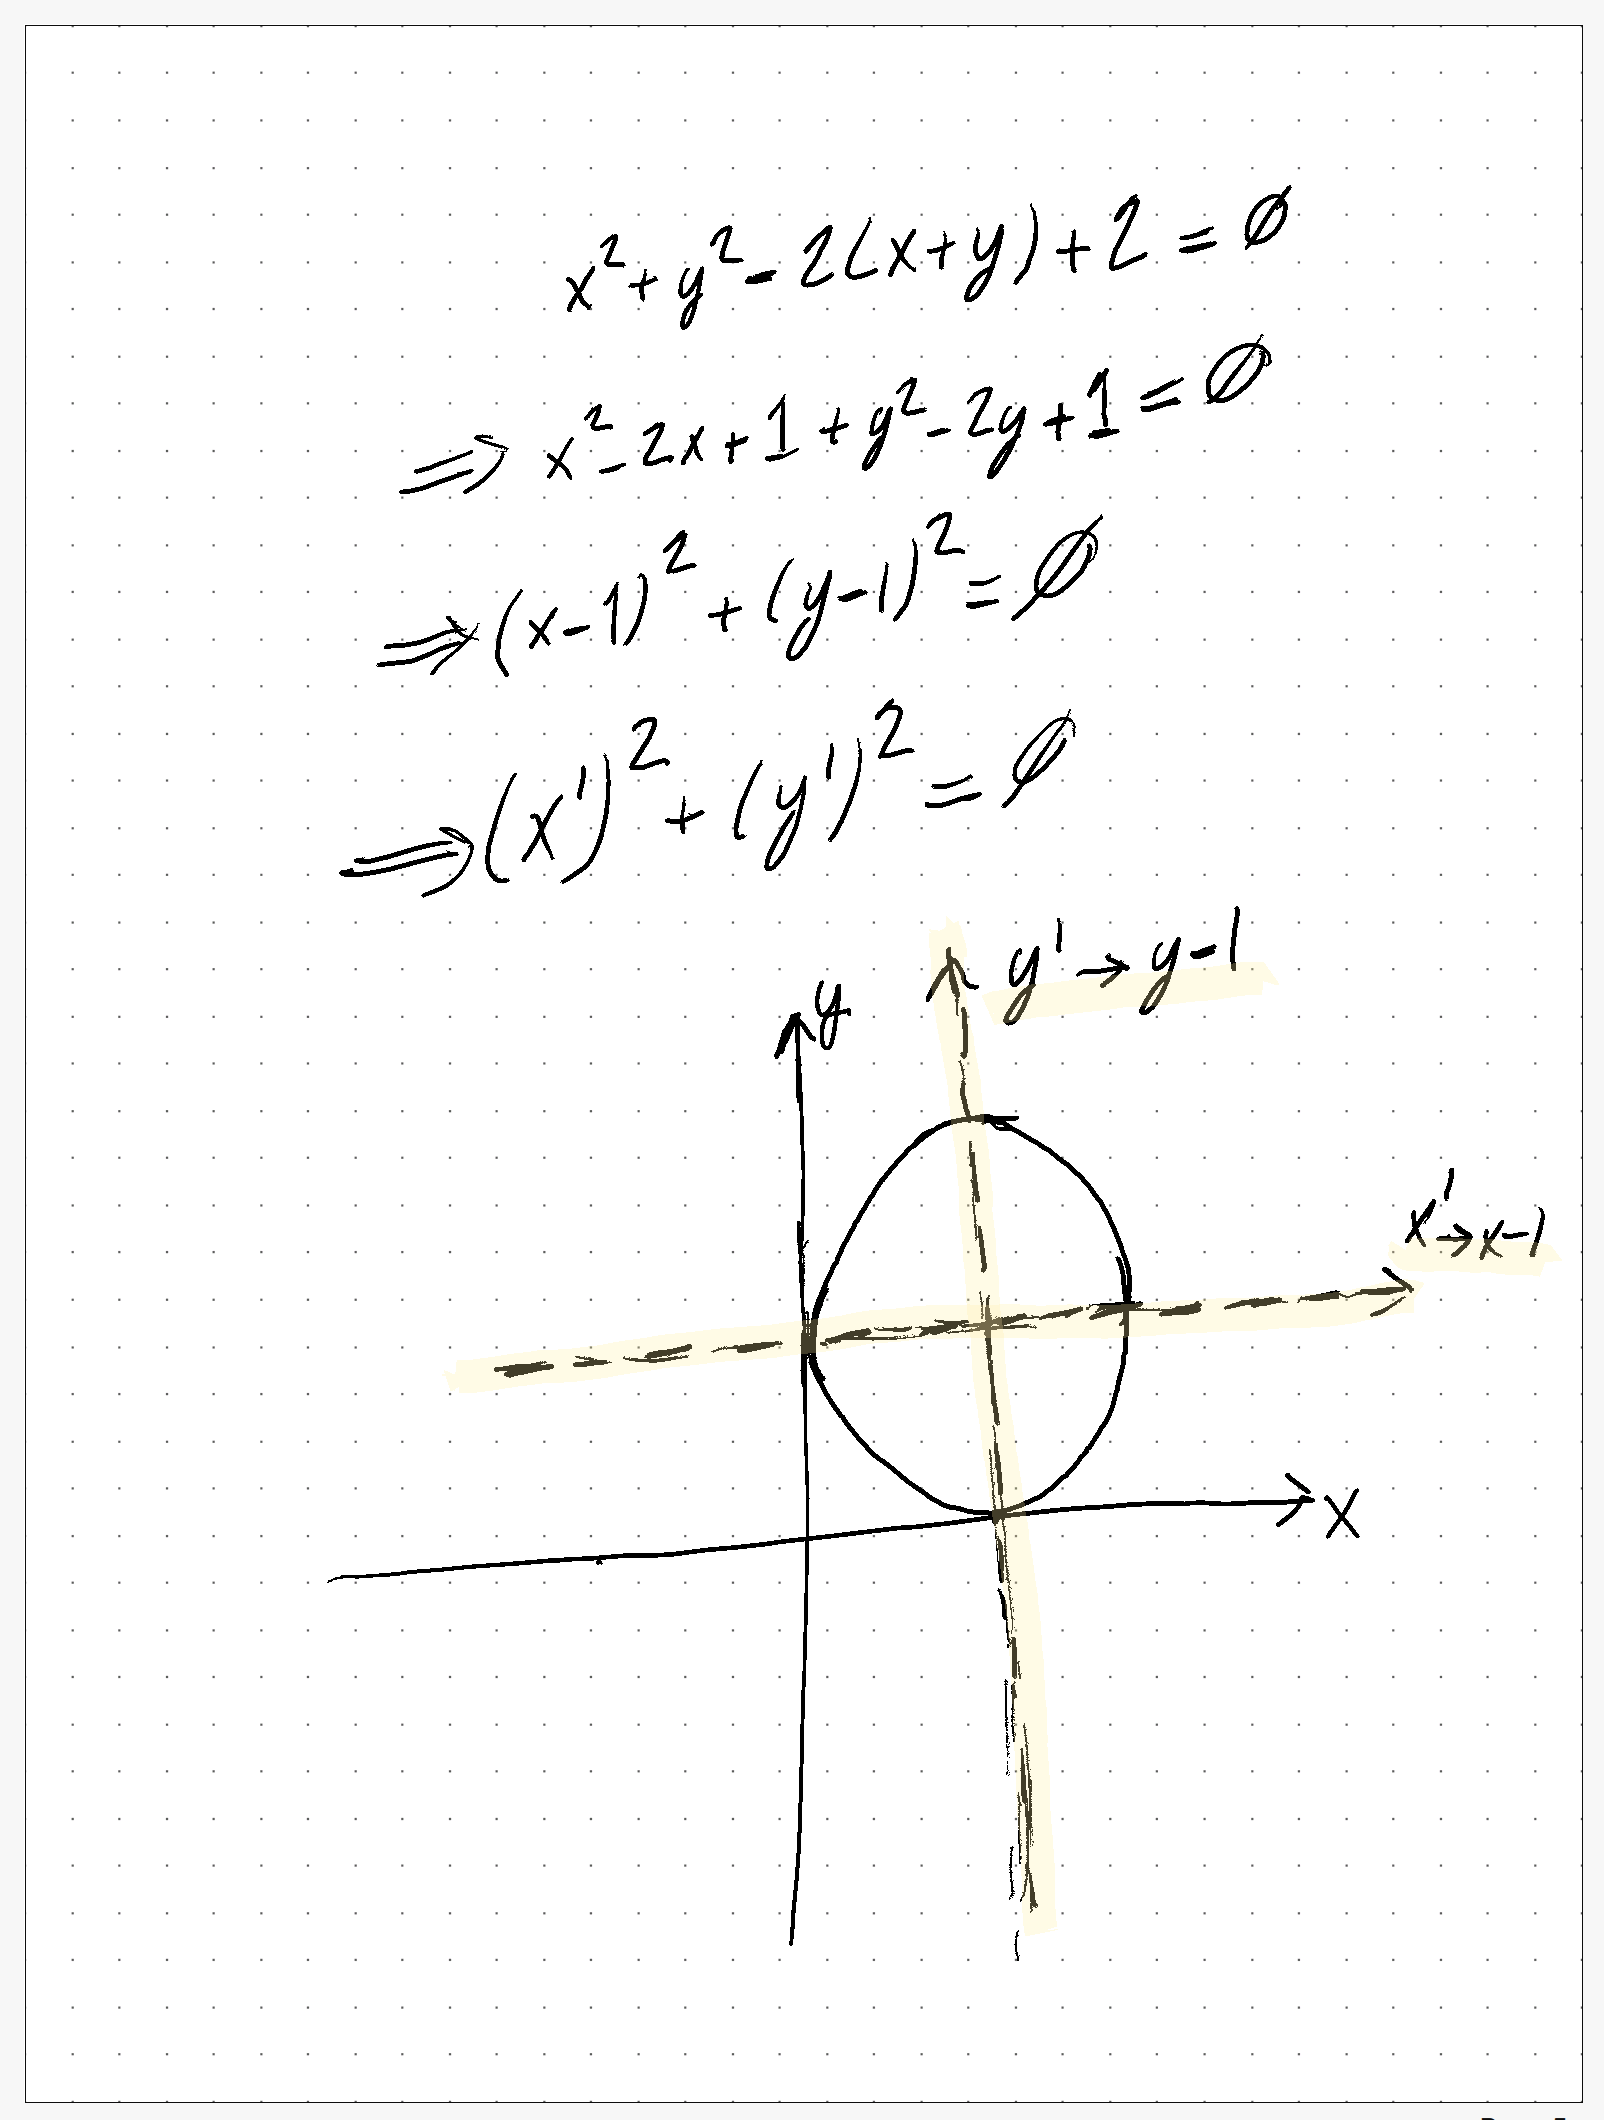 x² + y² - 2(x+y) + 2 = ∅
⇒ x² - 2x + 1 + y² - 2y + 1 = ∅
⇒ (x-1)² + (y-1)² = ∅
⇒ (x')² + (y')² = ∅
y' → y-1
y
x' → x-1
x